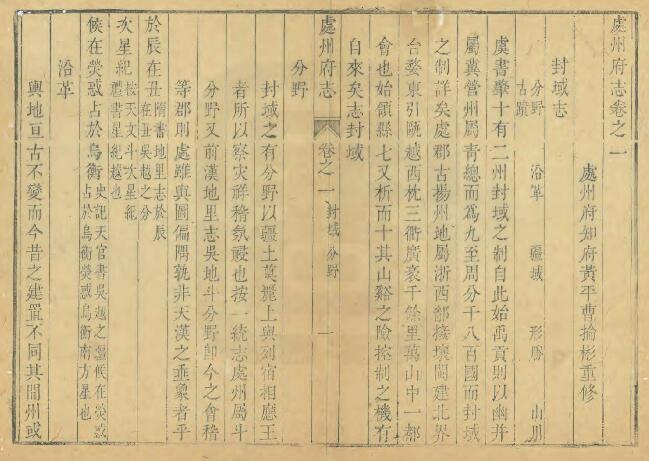 處州府志卷之一
處州府知府黃平曹掄彬重修
封域志
分野 沿革 疆域 形勝 山川
古蹟
虞書肇十有二州封域之制自此始禹貢則以幽并
屬冀營州屬青總而爲九至周分千八百國而封域
之制詳矣處郡古揚州地屬浙西鄰接壤閩建北界
台婺東引甌越西枕三衢廣袤千餘里萬山中一都
會也始領縣七又析而十其山谿之險控制之機有
自來矣志封域
處州府志 卷之一 封域 分野 一
分野
封域之有分野以疆土奠麗上與列宿相應王
者所以察灾祥稽氛祲也按一統志處州屬斗
分野又前漢地里志吳地斗分野卽今之會稽
等郡則處雖輿圖偏隅孰非天漢之垂象者乎
於辰在丑 隋書地里志於辰在丑吳越之分
次星紀 按天文斗次星紀禮書星紀越也
候在熒惑占於鳥衡 史記天官書吳越之疆候在熒惑占於鳥衡熒惑鳥衡南方星也
沿革
輿地亘古不變而今昔之建置不同其間州或